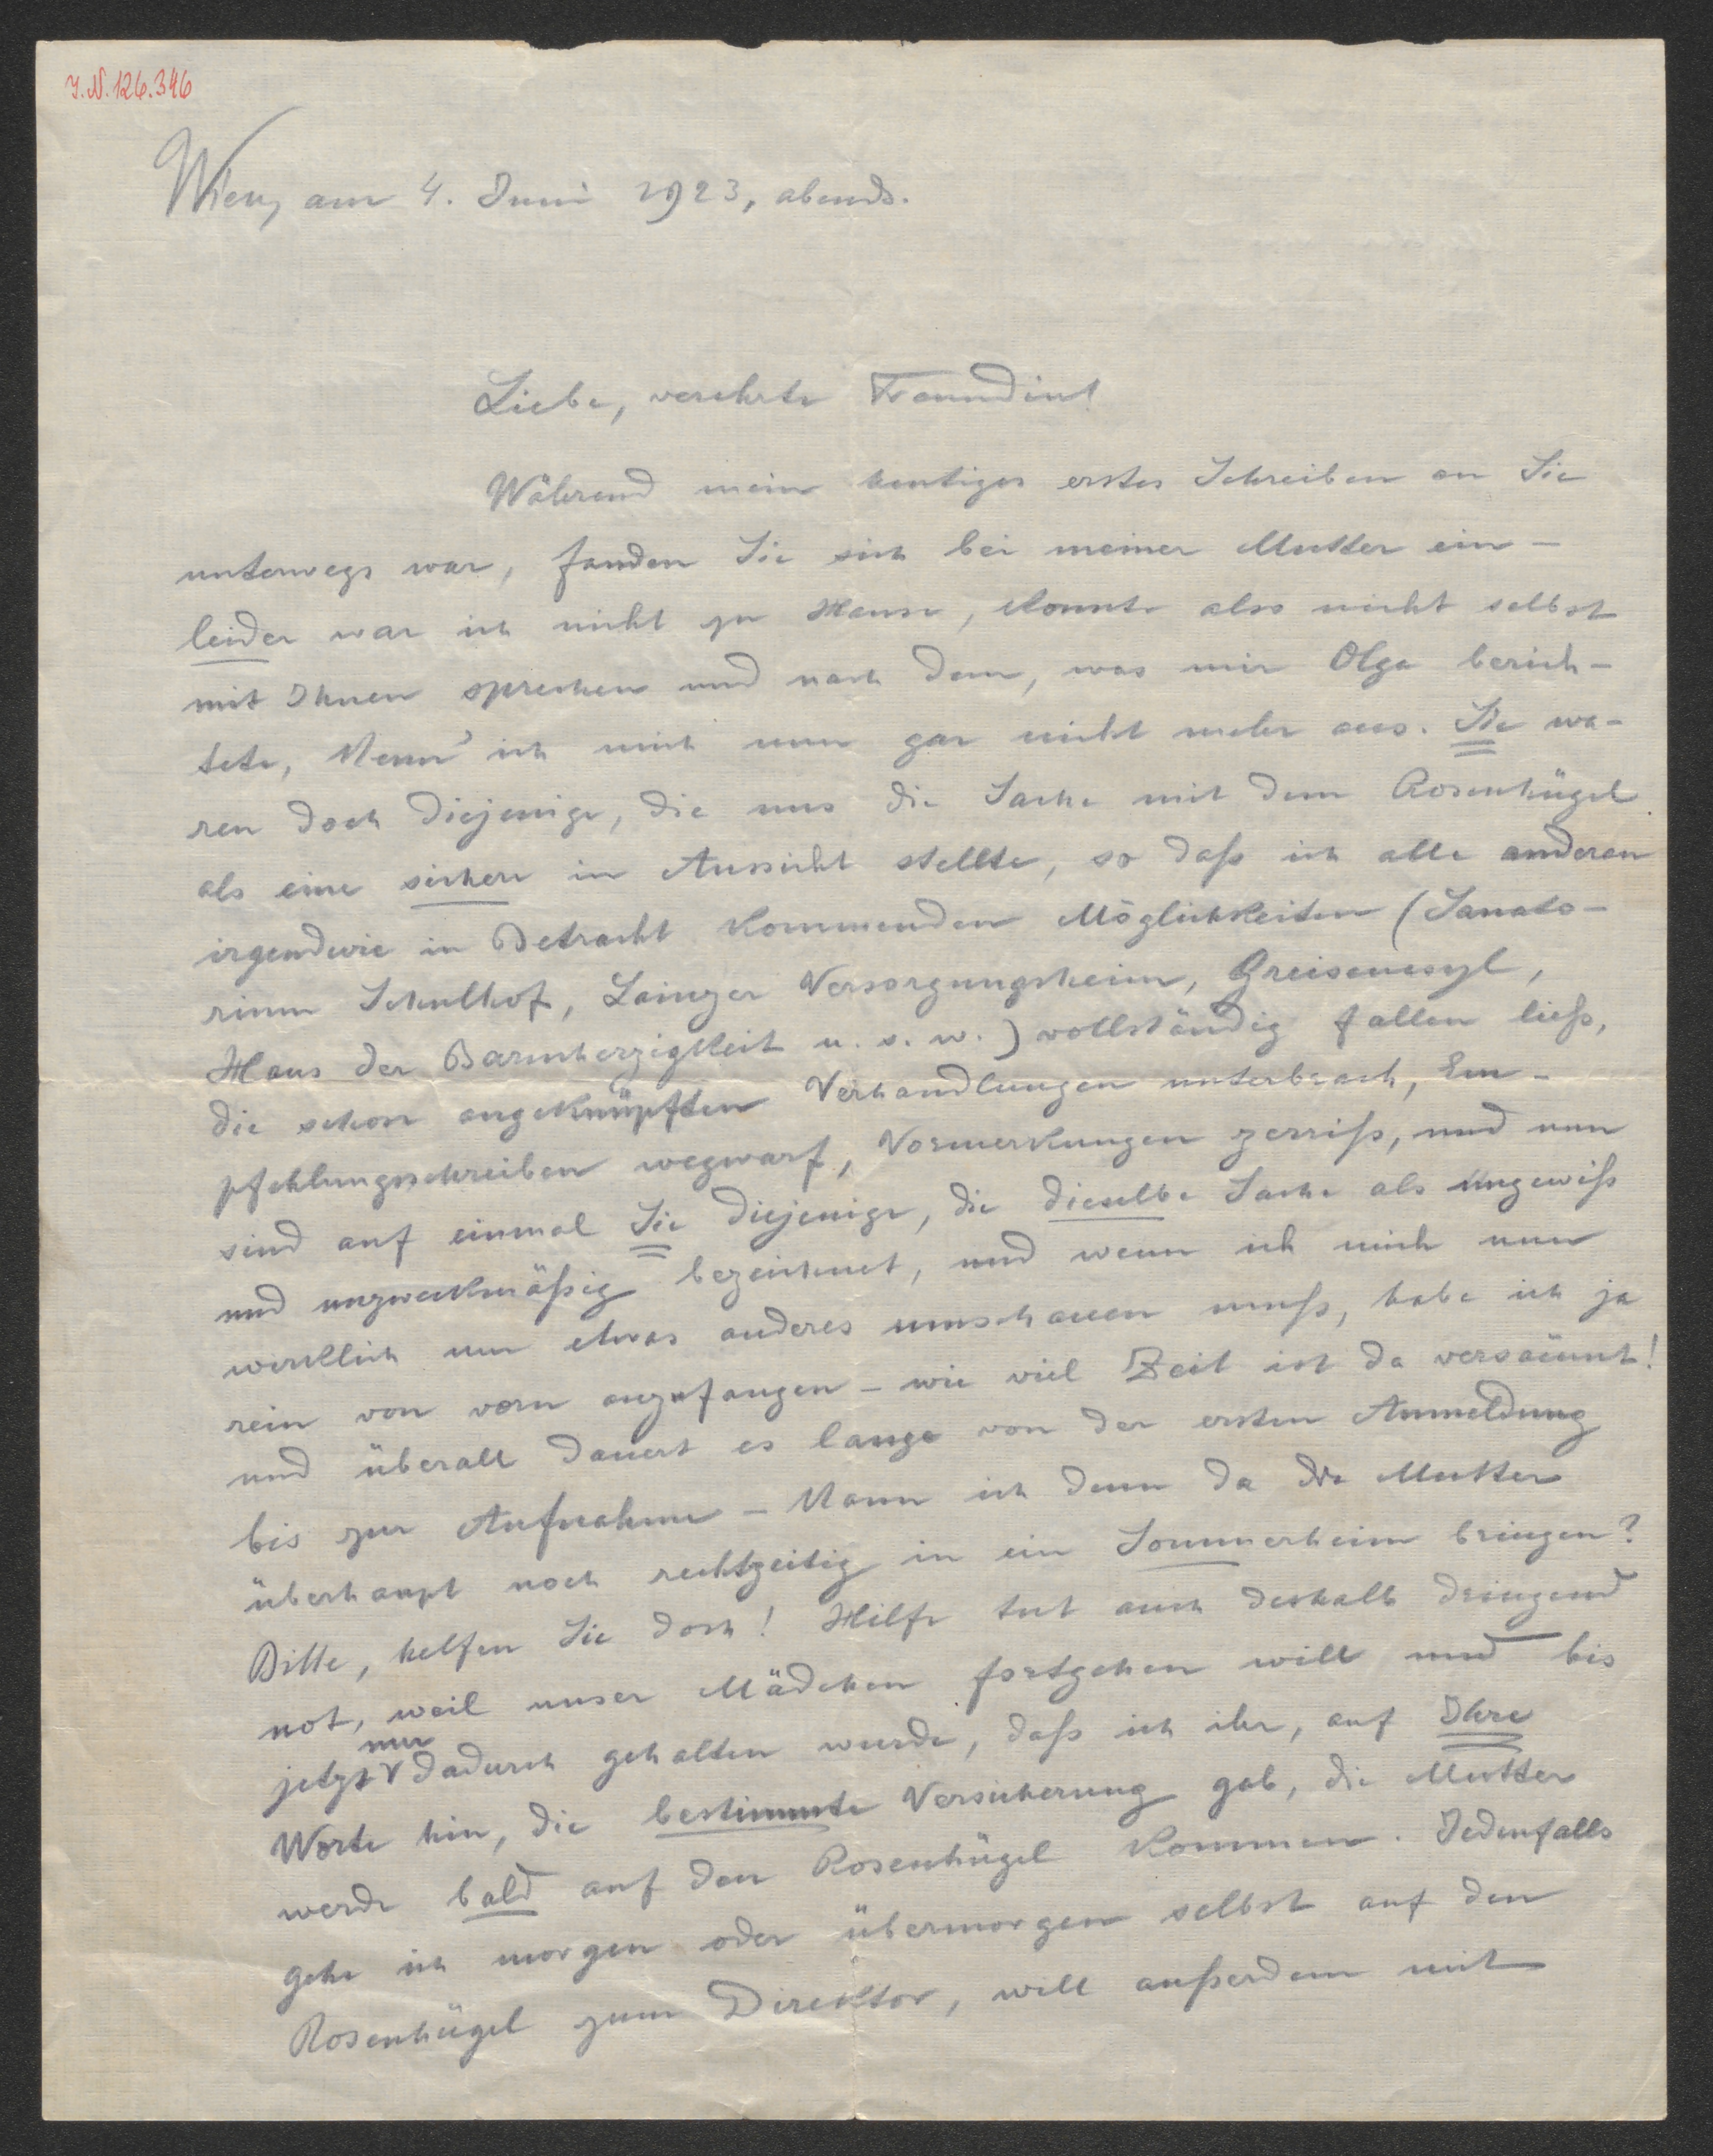 J.N. 126.346
Wien, am 4. Juni 1923, abends.
Liebe, verehrte Freundin!
Während mein heutiges erstes Schreiben an Sie
unterwegs war, fanden Sie sich bei meiner Mutter ein –
leider war ich nicht zu Hause, konnte also nicht selbst
mit Ihnen sprechen und nach dem, was mir Olga berich-
tete, kenn' ich mich nun gar nicht mehr aus. Sie wa-
ren doch diejenige, die uns die Sache mit dem Rosenhügel
als eine sichere in Aussicht stellte, so daß ich alle anderen
irgendwie in Betracht kommenden Möglichkeiten (Sanato-
rium Schulhof, Lainzer Versorgungsheim, Greisenasyl,
Haus der Barmherzigkeit u. s. w.) vollständig fallen ließ,
die schon angeknüpften Verhandlungen unterbrach, Em-
pfehlungsschreiben wegwarf, Vormerkungen zerriß, und nun
sind auf einmal Sie diejenige, die dieselbe Sache als ungewiß
und unzweckmäßig bezeichnet, und wenn ich mich nun
wirklich um etwas anderes umschauen muß, habe ich ja
rein von vorn anzufangen – wie viel Zeit ist da versäumt!
und überall dauert es lange von der ersten Anmeldung
bis zur Aufnahme – kann ich denn da die Mutter
überhaupt noch rechtzeitig in ein Sommerheim bringen?
Bitte, helfen Sie doch! Hilfe tut auch deshalb dringend
not, weil unser Mädchen fortgehen will und bis
jetzt nur dadurch gehalten wurde, daß ich ihr, auf Ihre
Worte hin, die bestimmte Versicherung gab, die Mutter
werde bald auf den Rosenhügel kommen. Jedenfalls
gehe ich morgen oder übermorgen selbst auf den
Rosenhügel zum Direktor, will außerdem mit